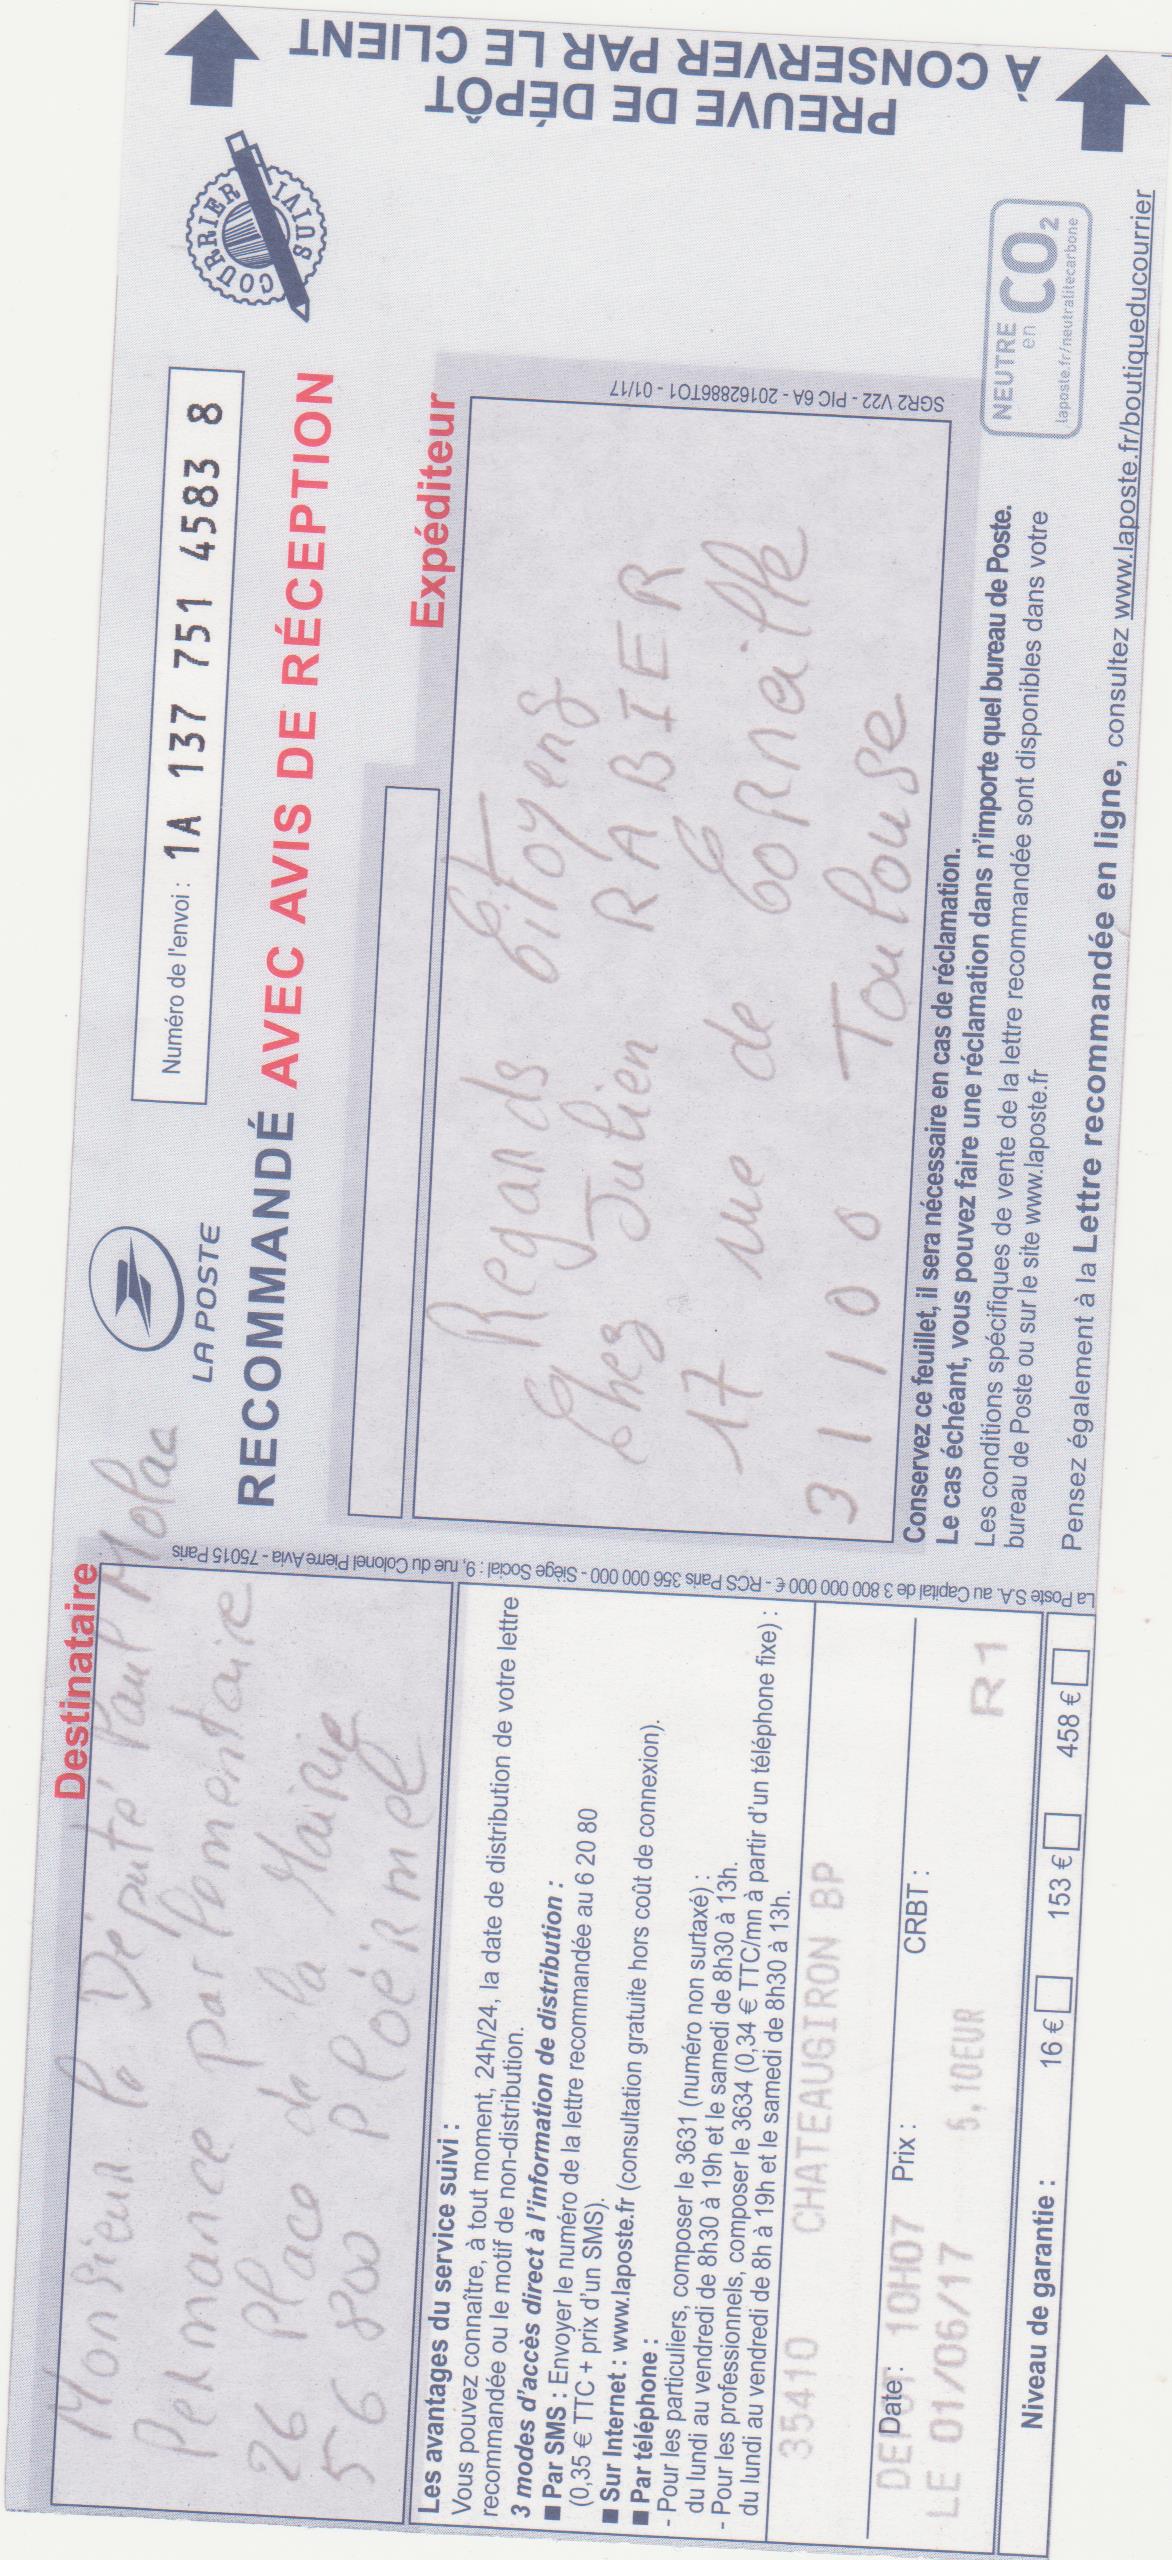 Destinataire
Monsieur le Député Paul Molac
Permanence parlementaire
26 Place de la Mairie
56 800 Ploërmel
Les avantages du service suivi :
Vous pouvez connaître, à tout moment, 24h/24, la date de distribution de votre lettre
recommandée ou le motif de non-distribution.
3 modes d'accès direct à l'information de distribution :
■ Par SMS : Envoyer le numéro de la lettre recommandée au 6 20 80
(0,35 € TTC + prix d'un SMS).
■ Sur Internet : www.laposte.fr (consultation gratuite hors coût de connexion).
■ Par téléphone :
- Pour les particuliers, composer le 3631 (numéro non surtaxé) :
du lundi au vendredi de 8h30 à 19h et le samedi de 8h30 à 13h.
- Pour les professionnels, composer le 3634 (0,34 € TTC/mn à partir d'un téléphone fixe) :
du lundi au vendredi de 8h à 19h et le samedi de 8h30 à 13h.
35410 CHATEAUGIRON BP
Date : Prix : CRBT :
DEPOT 10H07
LE 01/06/17 5,10EUR R1
Niveau de garantie : 16 € 153 € 458 €
La Poste S.A. au Capital de 3 800 000 000 € - RCS Paris 356 000 000 - Siège Social : 9, rue du Colonel Pierre Avia - 75015 Paris
LA POSTE
Numéro de l'envoi : 1A 137 751 4583 8
RECOMMANDÉ AVEC AVIS DE RÉCEPTION
COURRIER SUIVI
Expéditeur
Regards Citoyens
Chez Julien RABIER
17 rue de Corneille
31100 Toulouse
SGR2 V22 - PIC 6A - 20162886TO1 - 01/17
Conservez ce feuillet, il sera nécessaire en cas de réclamation.
Le cas échéant, vous pouvez faire une réclamation dans n'importe quel bureau de Poste.
Les conditions spécifiques de vente de la lettre recommandée sont disponibles dans votre
bureau de Poste ou sur le site www.laposte.fr
NEUTRE
en CO2
laposte.fr/neutralitecarbone
Pensez également à la Lettre recommandée en ligne, consultez www.laposte.fr/boutiqueducourrier
PREUVE DE DÉPÔT
À CONSERVER PAR LE CLIENT